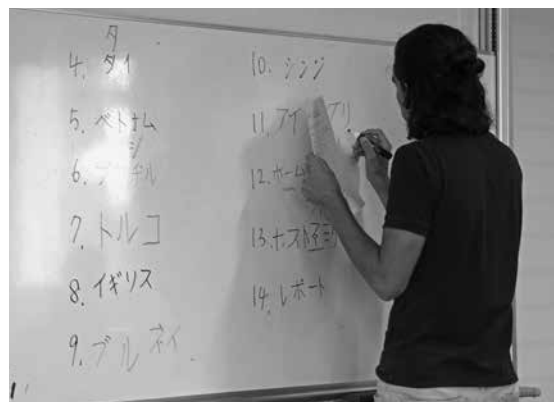 タ
4. タイ
5. ベトナム
ジ
6.
7. トルコ
8. イギリス
9. ブルネイ
10. シンジ
11. アイ
12. ホーム
13. ホスト
14. レポート